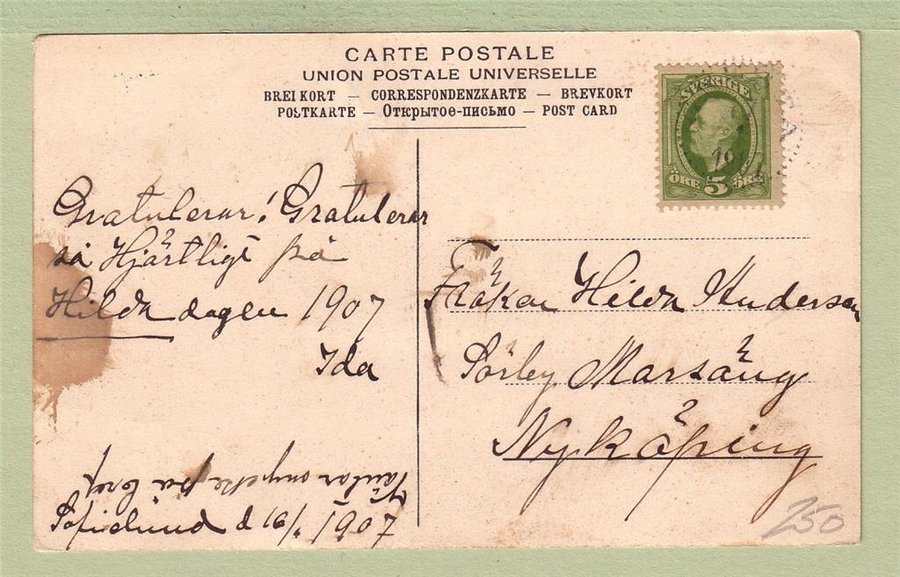 CARTE POSTALE
UNION POSTALE UNIVERSELLE
BREIKORT — CORRESPONDENZKARTE — BREVKORT
POSTKARTE — Открытое-письмо — POST CARD
SVERIGE
ÖRE 5 ÖRE
Gratulerar! Gratulerar
så Hjärtligt på
Hilda dagen 1907
Ida
Vi väntar mycke på bref
Sofielund d 16/1 1907
Fröken Hilda Anderson
Sörby Marsäng
Nyköping
250